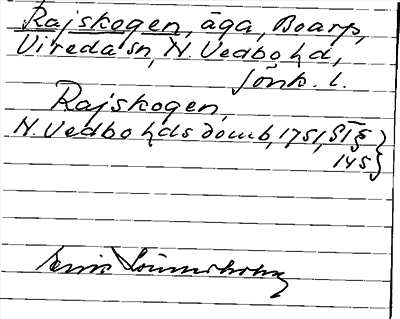 Rajskogen, äga, Boarp,
Vireda sn, N. Vedbo hd,
Jönk. l.
Rajskogen,
N. Vedbo hds domb, 1751, ST §
145